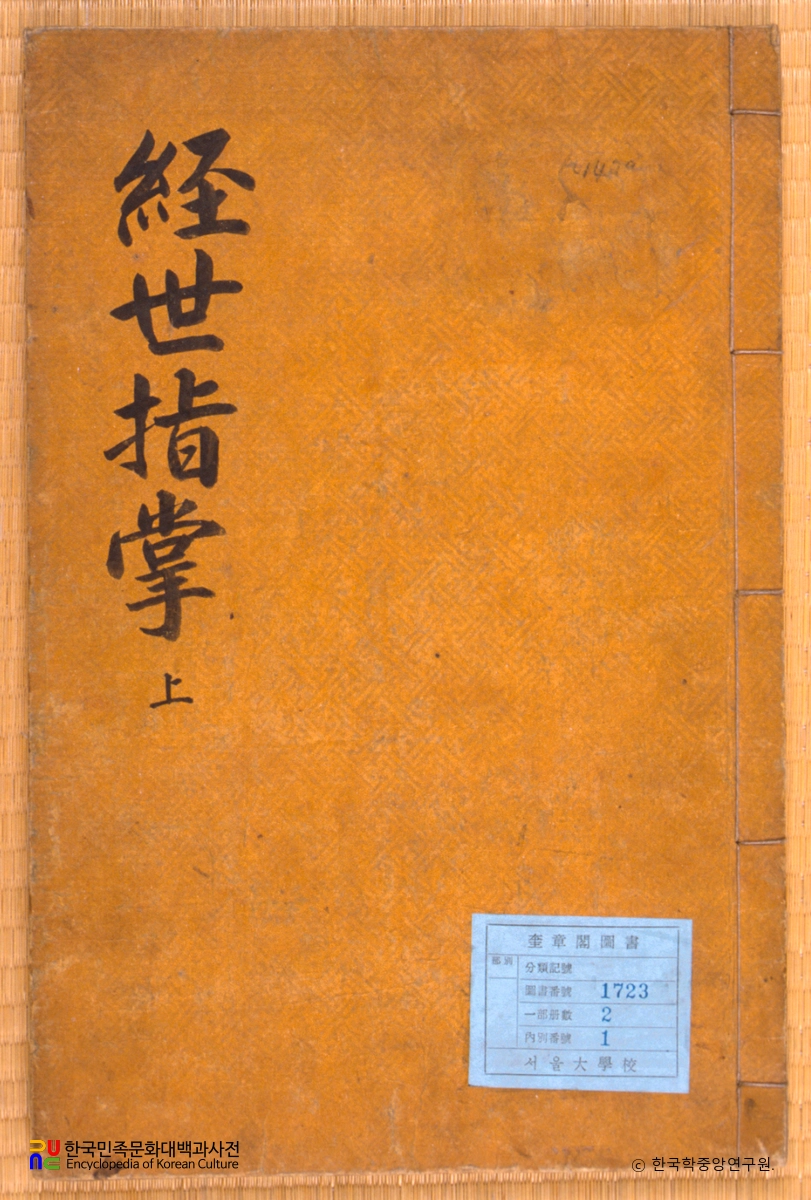 経世指掌 上
奎章閣圖書
部別
分類記號
圖書番號 1723
一部册數 2
內別番號 1
서울大學校
한국민족문화대백과사전
Encyclopedia of Korean Culture
© 한국학중앙연구원